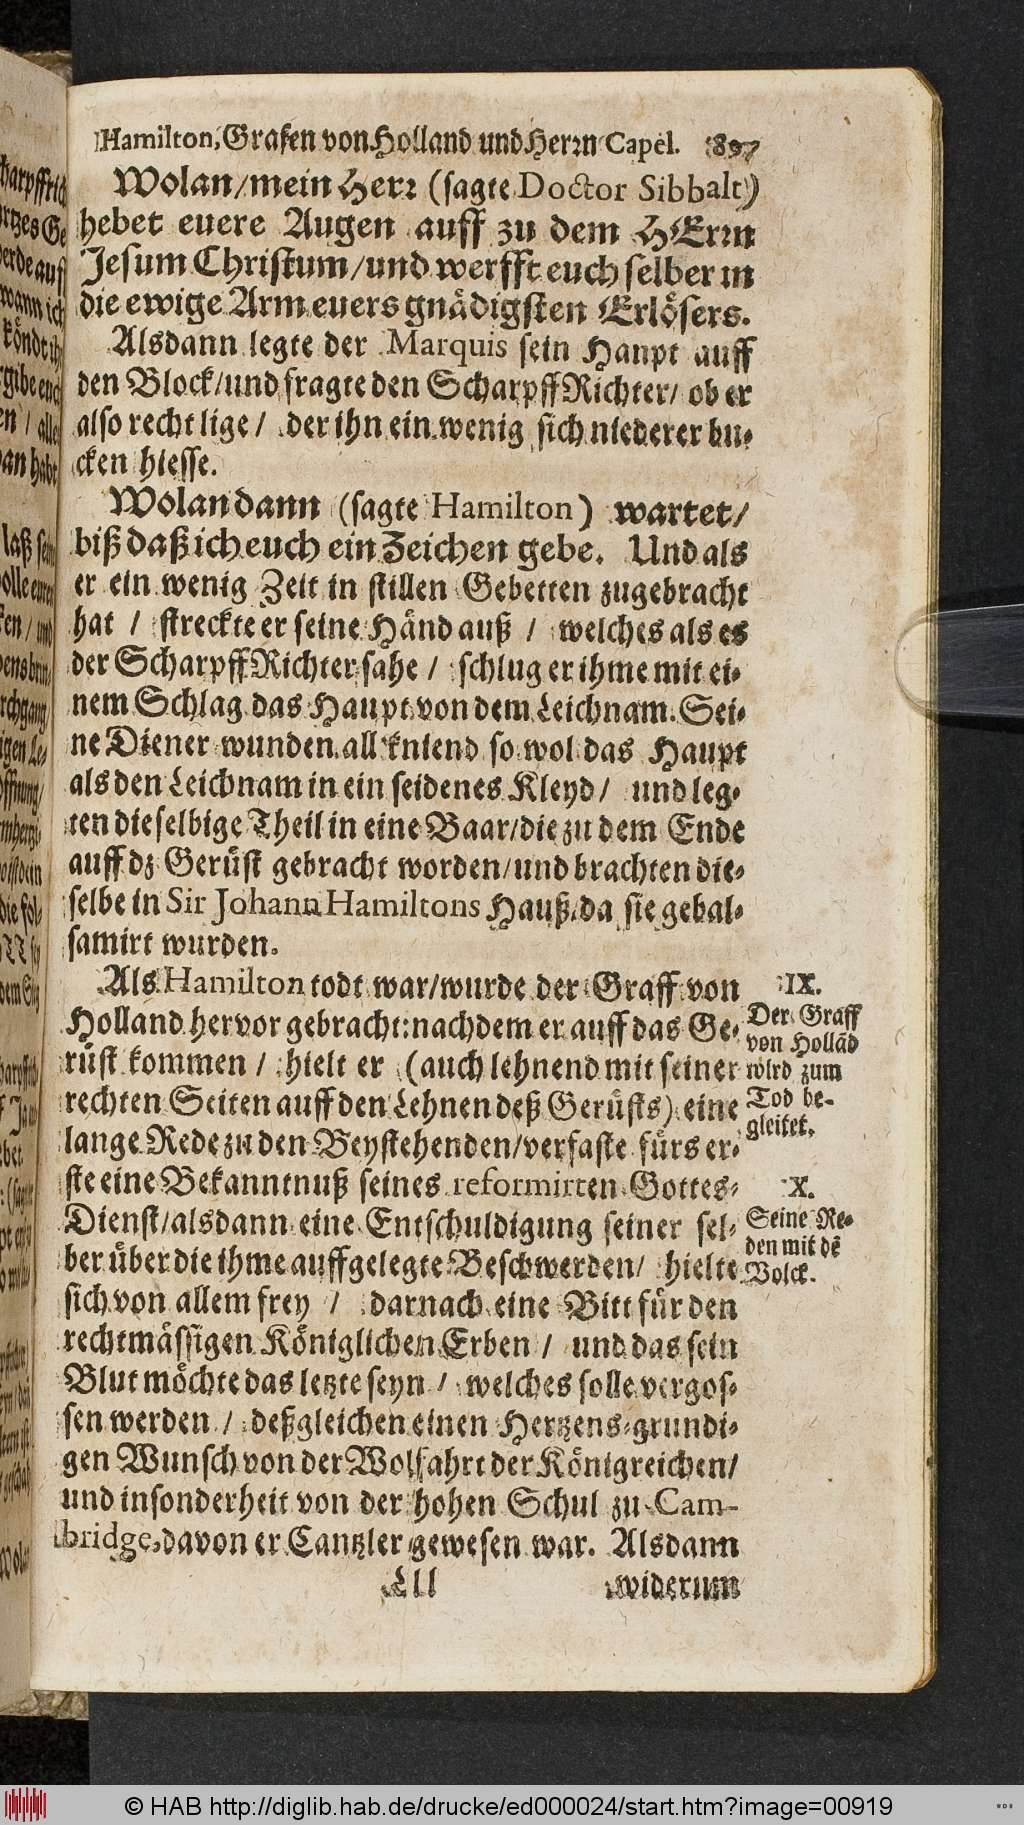 Hamilton, Grafen von Holland und Herꝛn Capel. 897
Wolan/ mein Herꝛ (sagte Doctor Sibbalt)
hebet euere Augen auff zu dem HErꝛn
Jesum Christum/ und werfft euch selber in
die ewige Arm euers gnädigsten Erlösers.
Alsdann legte der Marquis sein Haupt auff
den Block/ und fragte den Scharpff Richter/ ob er
also recht lige / der ihn ein wenig sich niederer bu-
cken hiesse.
Wolan dann (sagte Hamilton) wartet/
biß daß ich euch ein Zeichen gebe. Und als
er ein wenig Zeit in stillen Gebetten zugebracht
hat / streckte er seine Händ auß / welches als es
der Scharpff Richter sahe / schlug er ihme mit ei-
nem Schlag das Haupt von dem Leichnam. Sei-
ne Diener wunden all kniend so wol das Haupt
als den Leichnam in ein seidenes Kleyd / und leg-
ten dieselbige Theil in eine Baar/ die zu dem Ende
auff dz Gerüst gebracht worden/ und brachten die-
selbe in Sir Johann Hamiltons Hauß, da sie gebal-
samirt wurden.
Als Hamilton todt war/ wurde der Graff von
Holland hervor gebracht: nachdem er auff das Ge-
rüst kommen / hielt er (auch lehnend mit seiner
rechten Seiten auff den Lehnen deß Gerüsts) eine
lange Rede zu den Beystehenden/ verfaste fürs er-
ste eine Bekanntnuß seines reformirten Gottes-
Dienst/ alsdann eine Entschuldigung seiner sel-
ber über die ihme auffgelegte Beschwerden/ hielte
sich von allem frey / darnach eine Bitt für den
rechtmässigen Königlichen Erben / und das sein
Blut möchte das letzte seyn / welches solle vergos-
sen werden / deßgleichen einen Hertzens-grundi-
gen Wunsch von der Wolfahrt der Königreichen/
und insonderheit von der hohen Schul zu Cam-
bridge, davon er Cantzler gewesen war. Alsdann
Lll widerum
IX.
Der Graff
von Hollãd
wird zum
Tod be-
gleitet.
X.
Seine Re-
den mit dẽ
Volck.
© HAB http://diglib.hab.de/drucke/ed000024/start.htm?image=00919